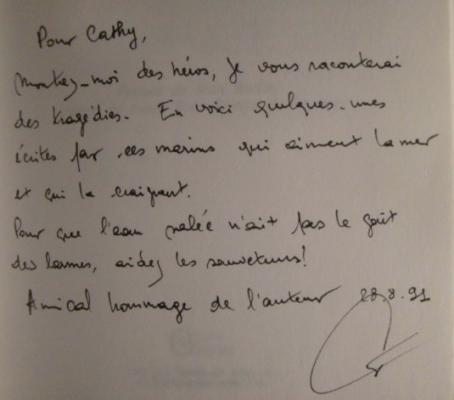 Pour Cathy,
Montrez-moi des héros, je vous raconterai
des tragédies. En voici quelques-unes
écrites par ces marins qui aiment la mer
et qui la craignent.
Pour que l'eau salée n'ait pas le goût
des larmes, aidez les sauveteurs!
Amical hommage de l'auteur 28.8.91